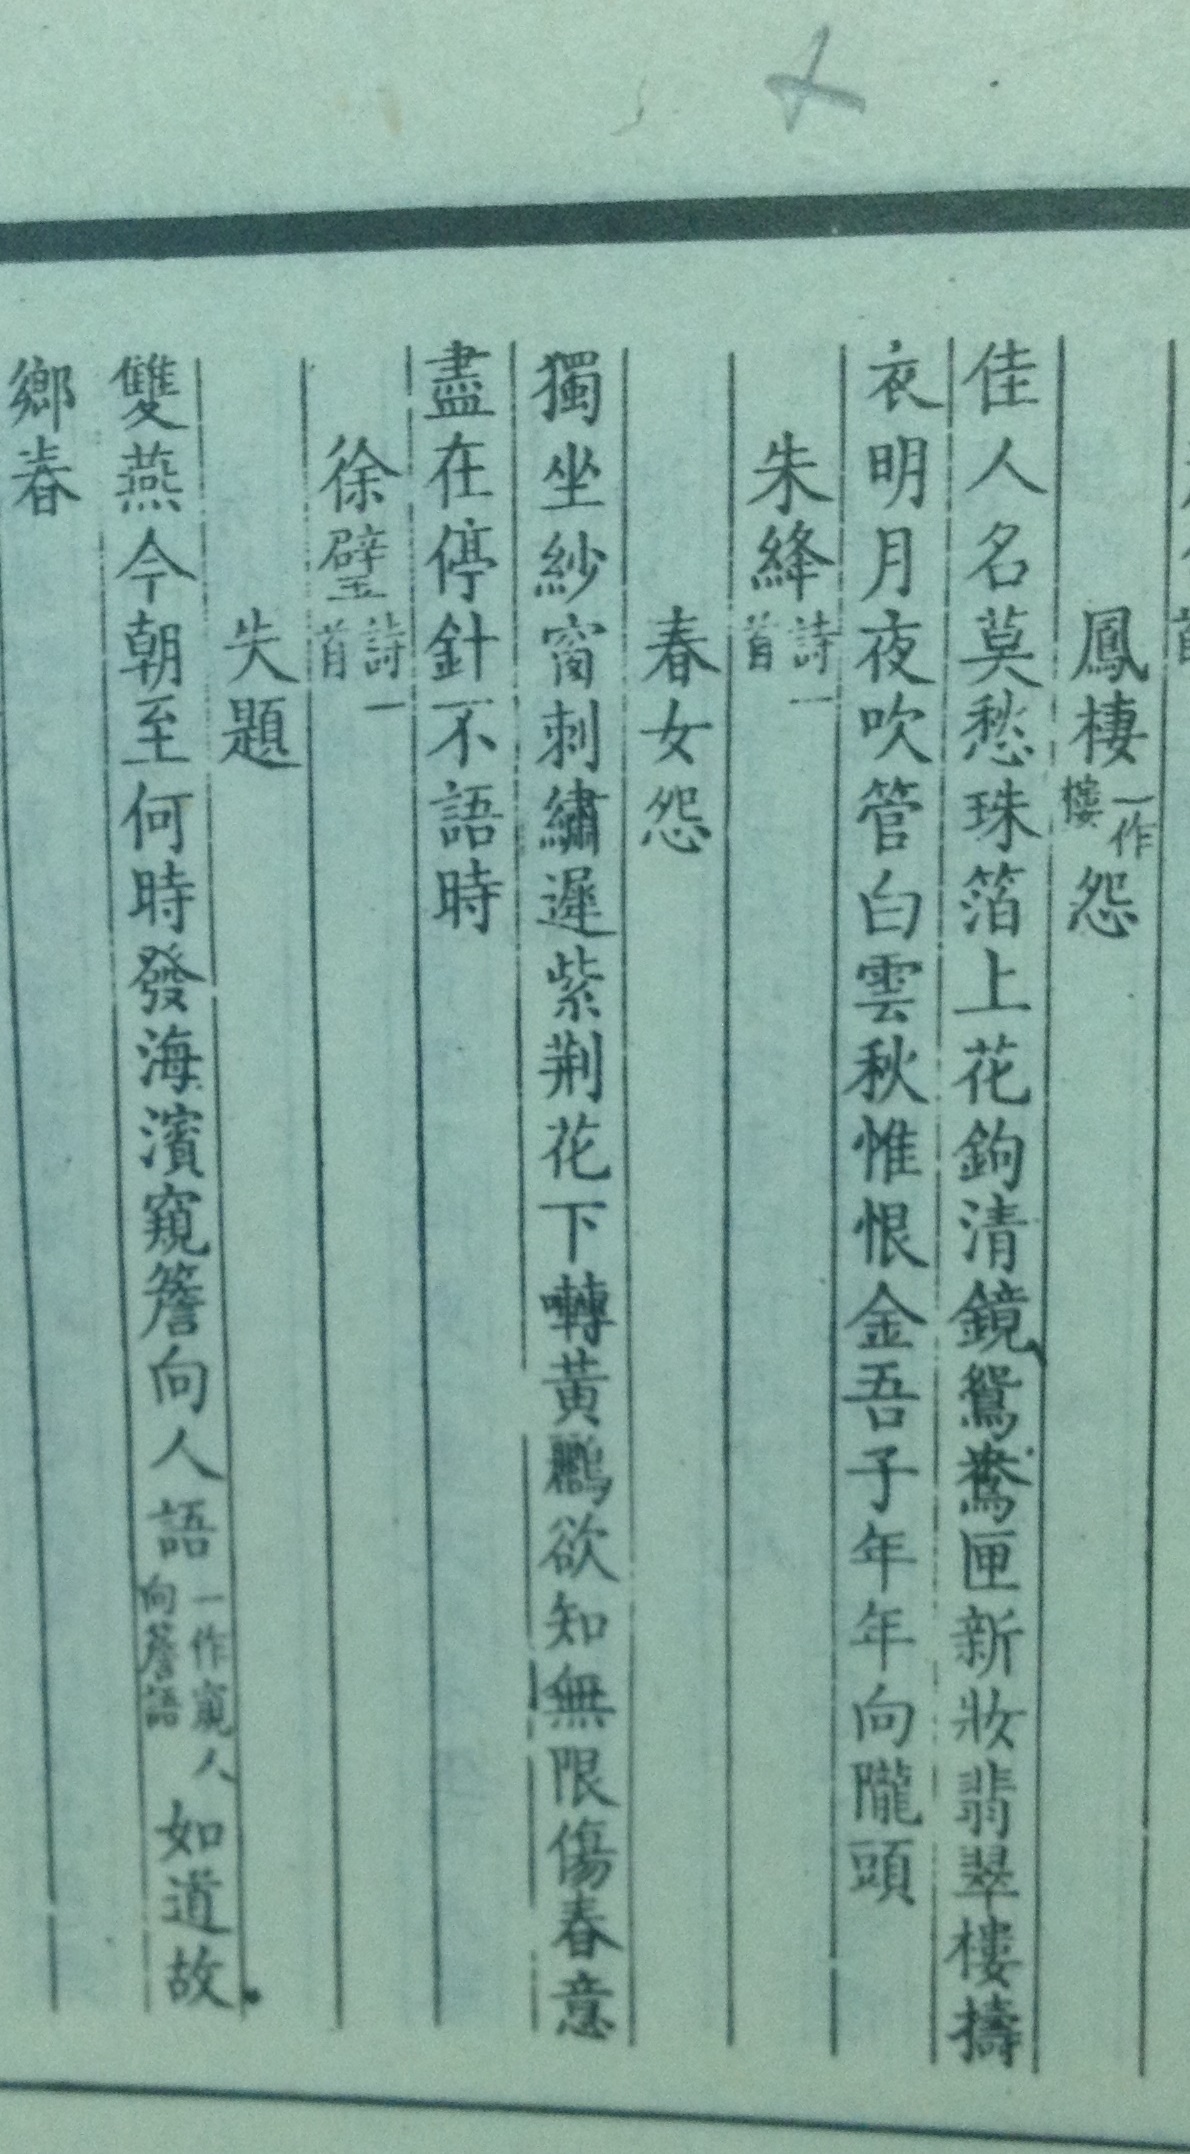 首
鳳棲一作樓怨
佳人名莫愁珠箔上花鉤清鏡鴛鴦匣新妝翡翠樓擣
衣明月夜吹管白雲秋惟恨金吾子年年向隴頭
朱絳詩一首
春女怨
獨坐紗窗刺繡遲紫荆花下囀黃鸝欲知無限傷春意
盡在停針不語時
徐璧詩一首
失題
雙燕今朝至何時發海濱窺簷向人語一作窺人向簷語如道故
鄉春